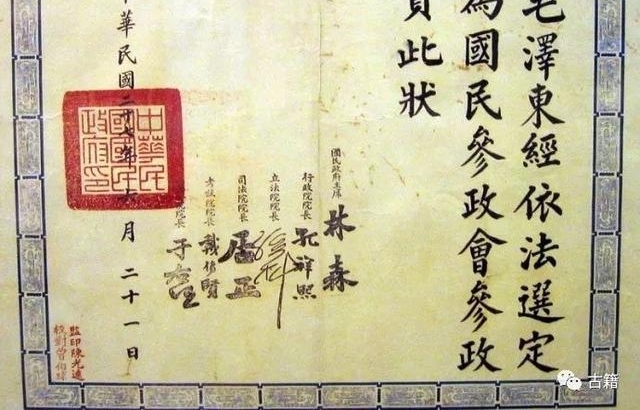 毛澤東經依法選定
為國民參政會參政
員此狀
國民政府主席 林森
行政院院長 孔祥熙
立法院院長 孫科
司法院院長 居正
考試院院長 戴傳賢
院院長 于右任
中華民國二十七年六月二十一日
中華民國國民政府印
監印陳光遠
校對曾伯
古籍